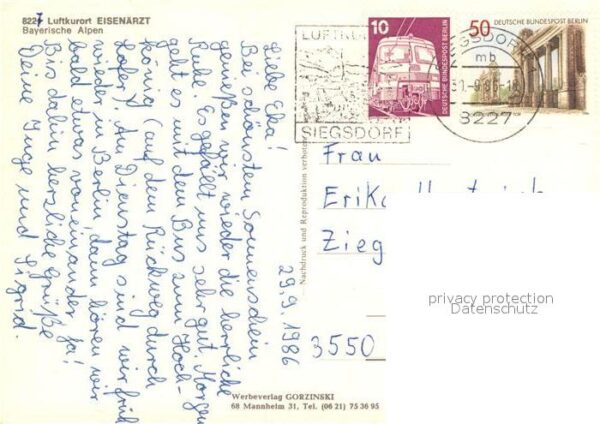 8227 Luftkurort EISENÄRZT
Bayerische Alpen
Liebe Eka!
Bei schönstem Sonnenschein
genießen wir wieder die herrliche
Ruhe. Es gefällt uns sehr gut. Morgen
geht es mit dem Bus zum Hoch-
könig (auf dem Rückweg durch
Lofer). Am Dienstag sind wir früh
wieder in Berlin, dann hören wir
bald etwas voneinander, ja!
Bis dahin herzliche Grüße
Deine Inge und Sigrid.
29.9.1986
10
DEUTSCHE BUNDESPOST BERLIN
50
DEUTSCHE BUNDESPOST BERLIN
LUFTKUR
SIEGSDORF
SIEGSDORF
mb
8227
Frau
Erika
Zieg
3550
Nachdruck und Reproduktion verboten
privacy protection
Datenschutz
Werbeverlag GORZINSKI
68 Mannheim 31, Tel. (06 21) 75 36 95